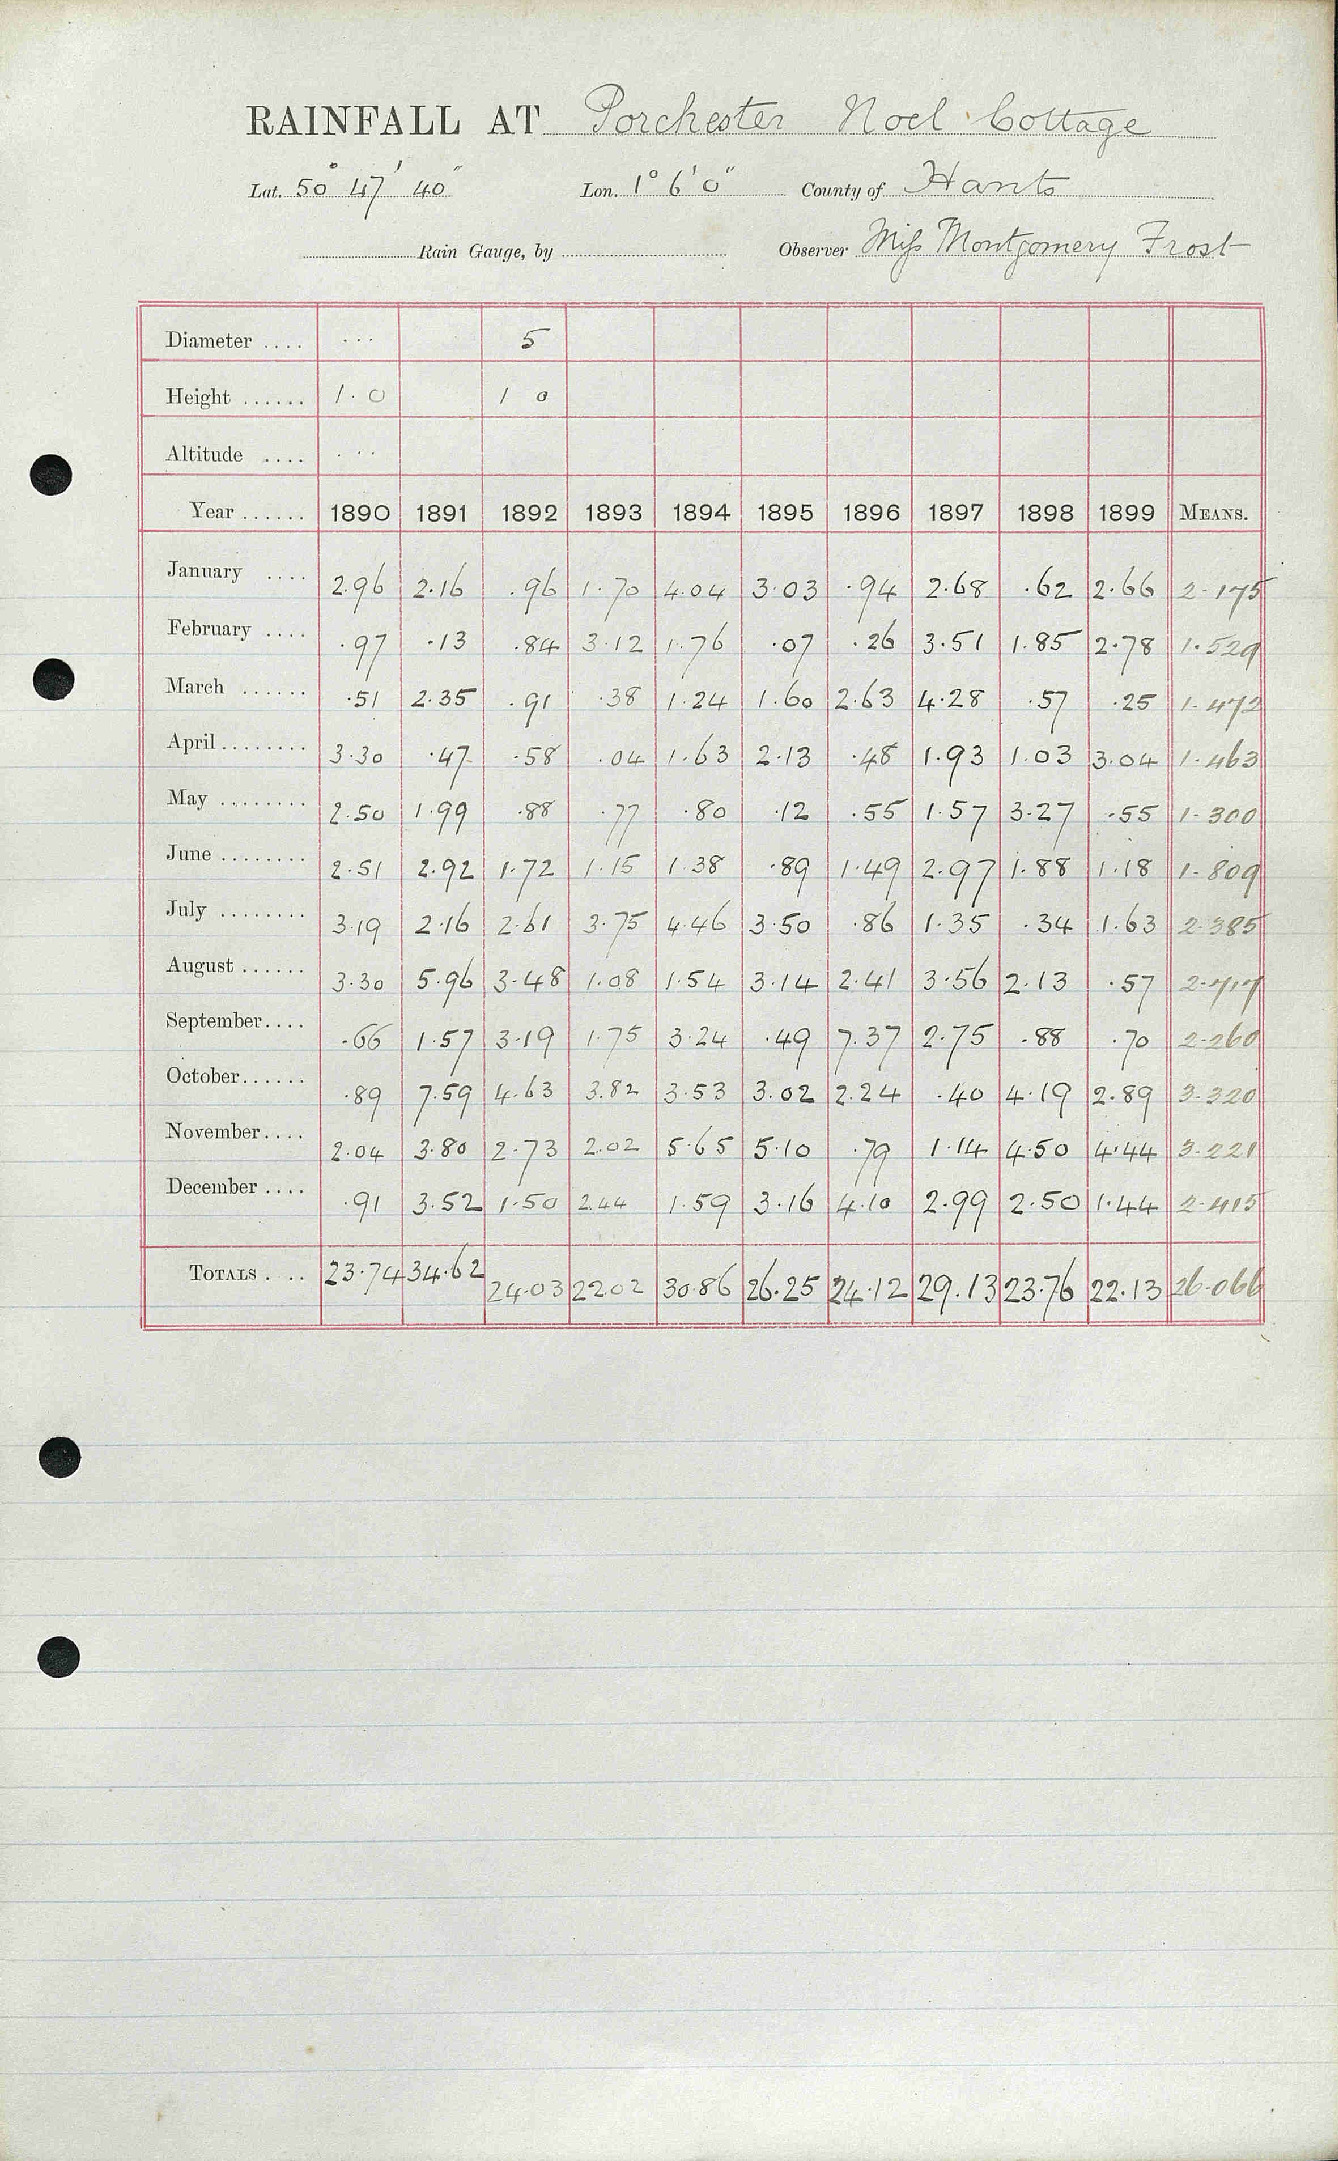 RAINFALL AT Porchester Noel Cottage
Lat. 50° 47' 40" Lon. 1° 6' 0" County of Hants
Rain Gauge, by Observer Miss Montgomery Frost
Diameter .... ... 5
Height ...... 1.0 1 0
Altitude .... ...
Year ...... 1890 1891 1892 1893 1894 1895 1896 1897 1898 1899 MEANS.
January .... 2.96 2.16 .96 1.70 4.04 3.03 .94 2.68 .62 2.66 2.175
February .... .97 .13 .84 3.12 1.76 .07 .26 3.51 1.85 2.78 1.529
March ...... .51 2.35 .91 .38 1.24 1.60 2.63 4.28 .57 .25 1.472
April ........ 3.30 .47 .58 .04 1.63 2.13 .48 1.93 1.03 3.04 1.463
May ........ 2.50 1.99 .88 .77 .80 .12 .55 1.57 3.27 .55 1.300
June ........ 2.51 2.92 1.72 1.15 1.38 .89 1.49 2.97 1.88 1.18 1.809
July ........ 3.19 2.16 2.61 3.75 4.46 3.50 .86 1.35 .34 1.63 2.385
August ...... 3.30 5.96 3.48 1.08 1.54 3.14 2.41 3.56 2.13 .57 2.717
September .... .66 1.57 3.19 1.75 3.24 .49 7.37 2.75 .88 .70 2.260
October ...... .89 7.59 4.63 3.82 3.53 3.02 2.24 .40 4.19 2.89 3.320
November .... 2.04 3.80 2.73 2.02 5.65 5.10 .79 1.14 4.50 4.44 3.221
December .... .91 3.52 1.50 2.44 1.59 3.16 4.10 2.99 2.50 1.44 2.415
TOTALS .... 23.74 34.62 24.03 22.02 30.86 26.25 24.12 29.13 23.76 22.13 26.066